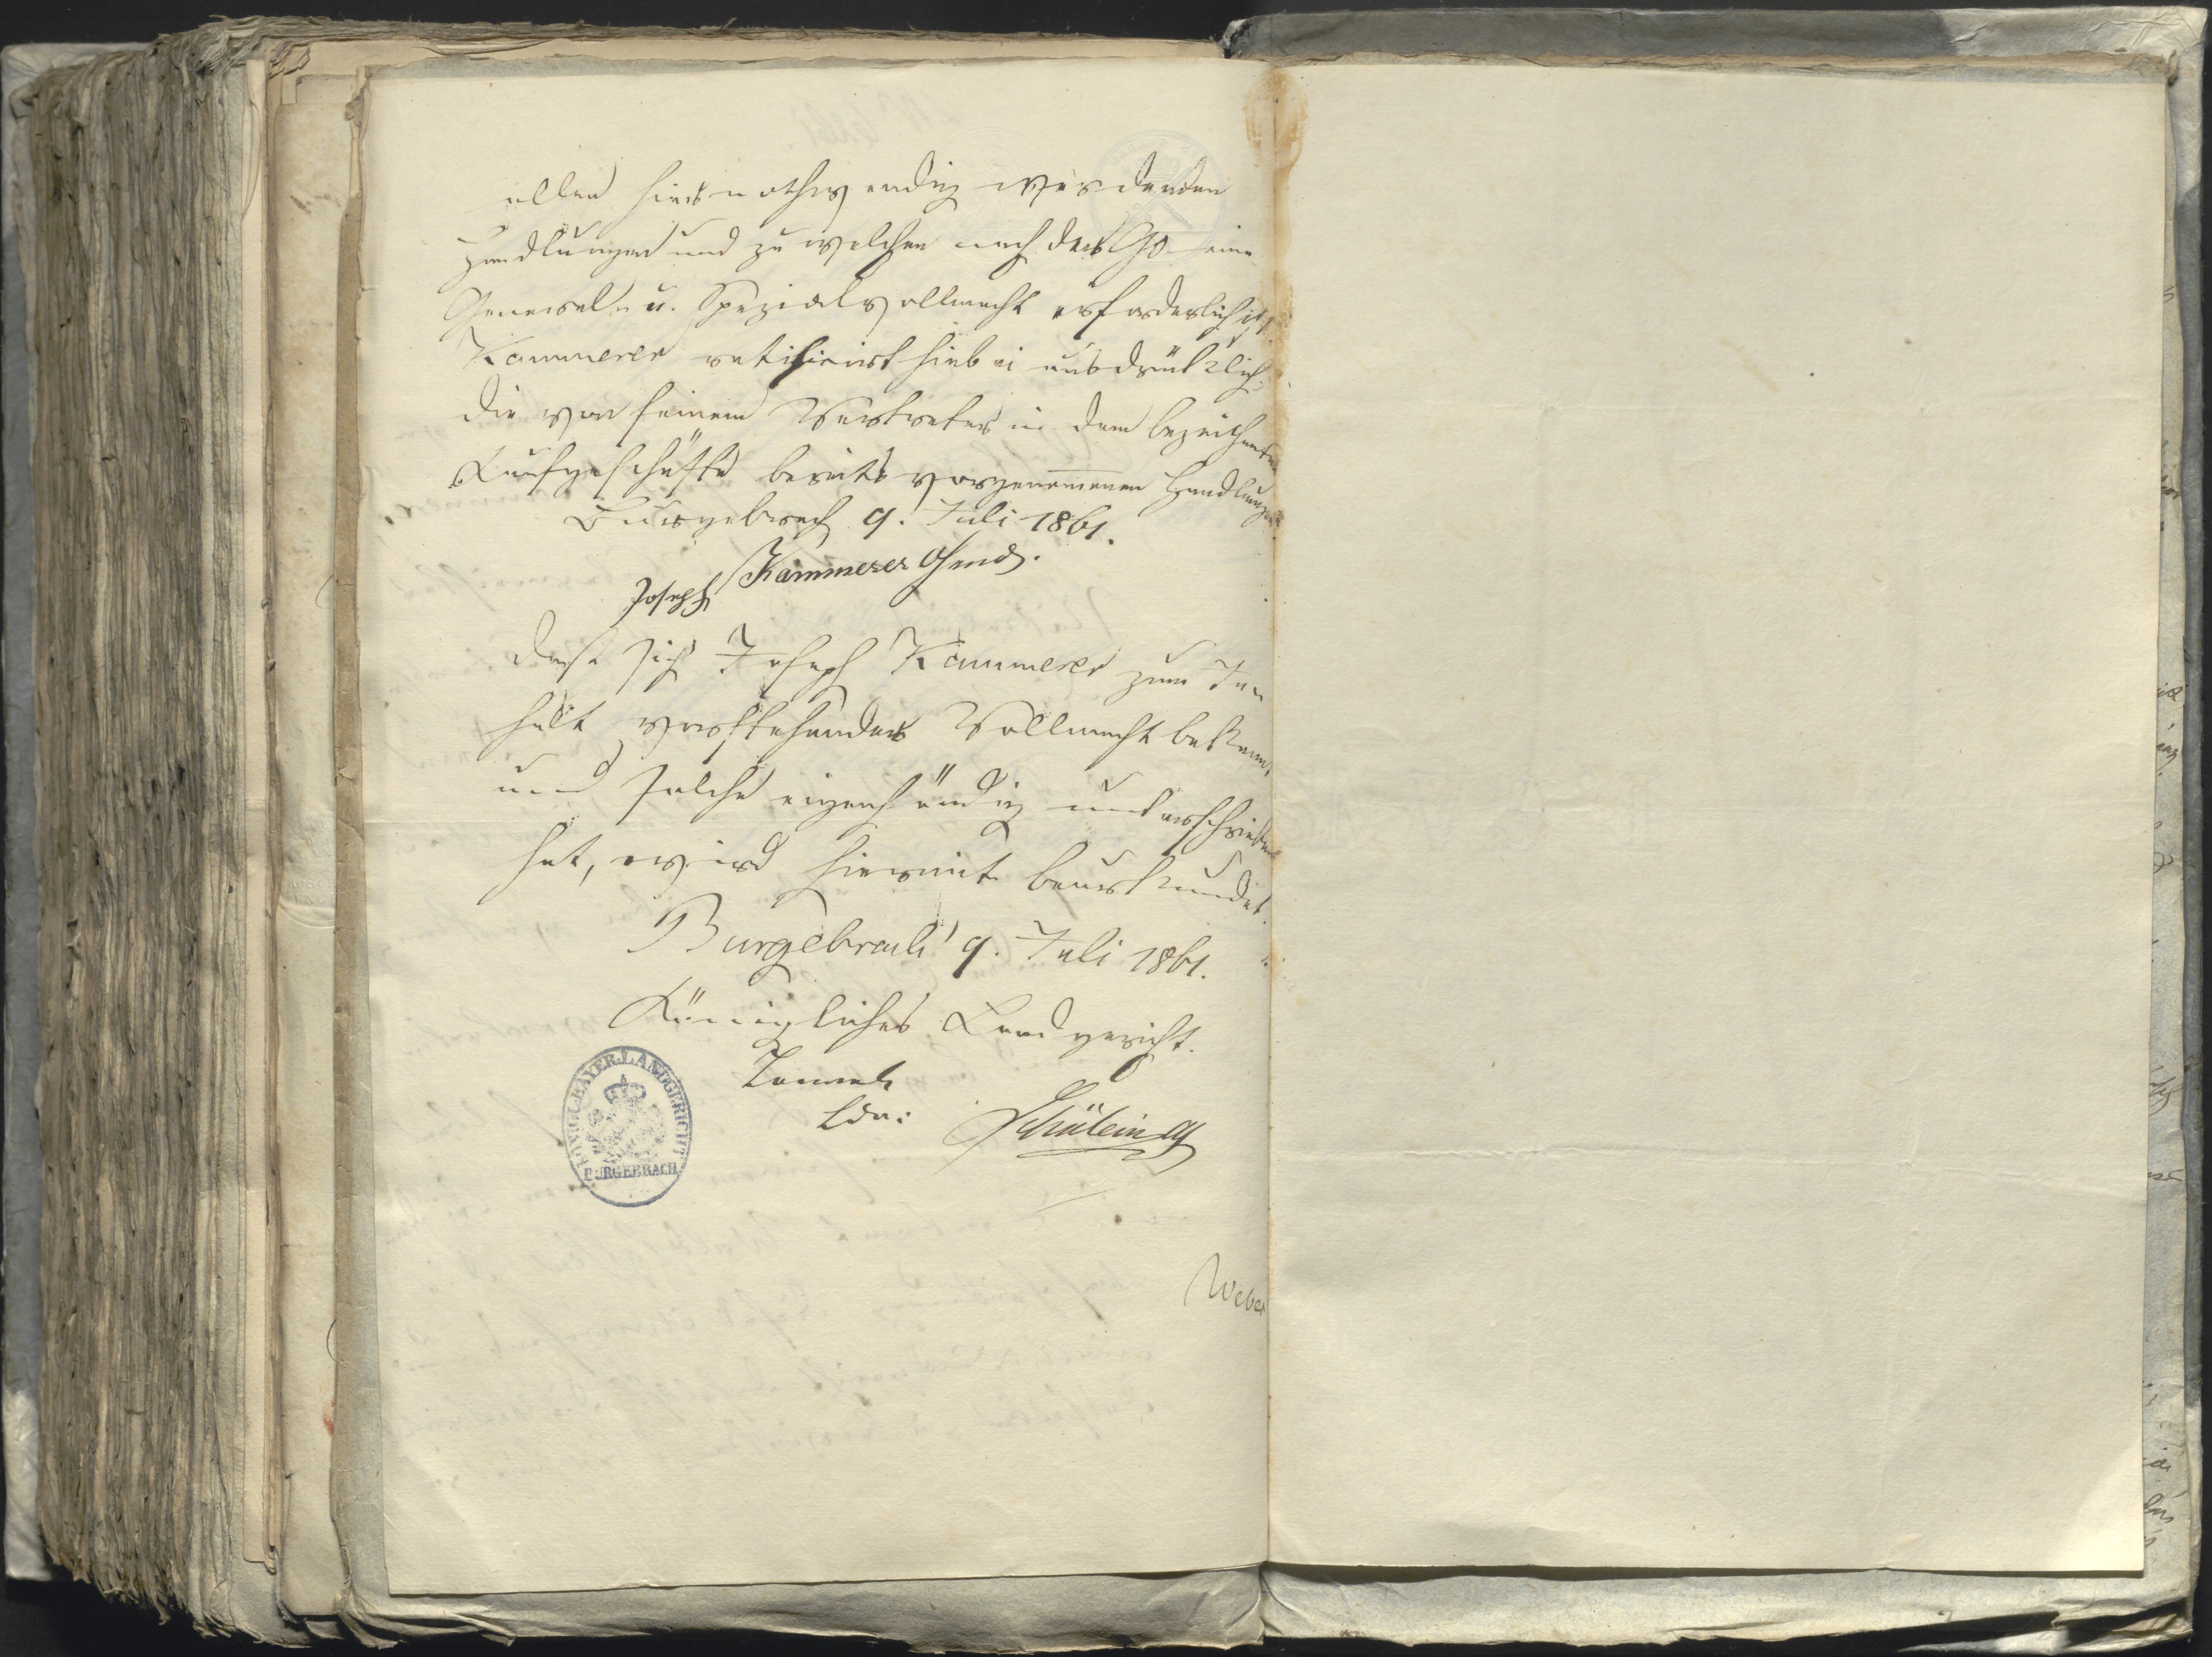 allen hier nothwendig werdenden
Handlungen und zu welchen nach der GO eine
General- u. Spezialvollmacht erforderlich ist.
Kammerer ratifizirt hiebei ausdrücklich
die von seinem Vertreter in dem bezeichneten
Kaufgeschäfte bereits vorgenommenen Handlungen
Burgebrach 9. Juli 1861.
Joseph Kammerer
Daß sich Joseph Kammerer zum In-
halt vorstehender Vollmacht bekannt
und solche eigenhändig unterschrieben
hat, wird hiermit beurkundet.
Burgebrach 9. Juli 1861.
Königliches Landgericht.
Ldr:
KÖNIGL. BAYER. LANDGERICHT
BURGEBRACH
Weber